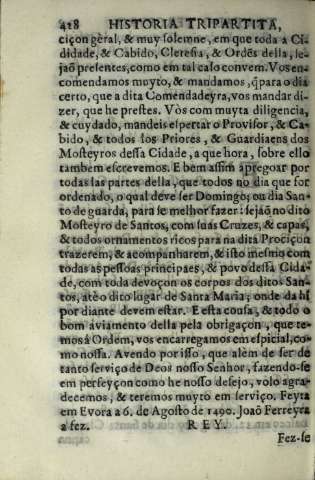 428 HISTORIA TRIPARTITA,
ciçon gèral, & muy solemne, em que toda a Ci-
didade, & Cabido, Cleresia, & Ordēs della, se-
jaõ presentes, como em tal caso convem. Vos en-
comendamos muyto, & mandamos, q̃ para o dia
certo, que a dita Comendadeyra, vos mandar di-
zer, que he prestes. Vòs com muyta diligencia,
& cuydado, mandeis espertar o Provisor, & Ca-
bido, & todos los Priores, & Guardiaens dos
Mosteyros dessa Cidade, a que hora, sobre ello
tambem escrevemos. E bem assim apregoar por
todas las partes della, que todos no dia que for
ordenado, o qual deve ser Domingo; ou dia San-
to de guarda, para se melhor fazer: sejaõ no dito
Mosteyro de Santos, com suas Cruzes, & capas,
& todos ornamentos ricos para na dita Prociçon
trazerem, & acompanharem, & isto mesmo com
todas as pessoas principaes, & povo dessa Cida-
de, com toda devoçon os corpos dos ditos San-
tos, atè o dito lugar de Santa Maria; onde da hi
por diante devem estar. E esta cousa, & todo o
bom aviamento della pela obrigaçon, que te-
mos á Ordem, vos encarregamos em espicial, co-
mo nossa. Avendo por isso, que alèm de ser de
tanto serviço de Deos nosso Senhor, fazendo-se
em perseyçon como he nosso desejo, volo agra-
decemos, & teremos muyto em serviço. Feyta
em Evora a 6. de Agosto de 1490. Joaõ Ferreyra
a fez. REY.
Fez-se